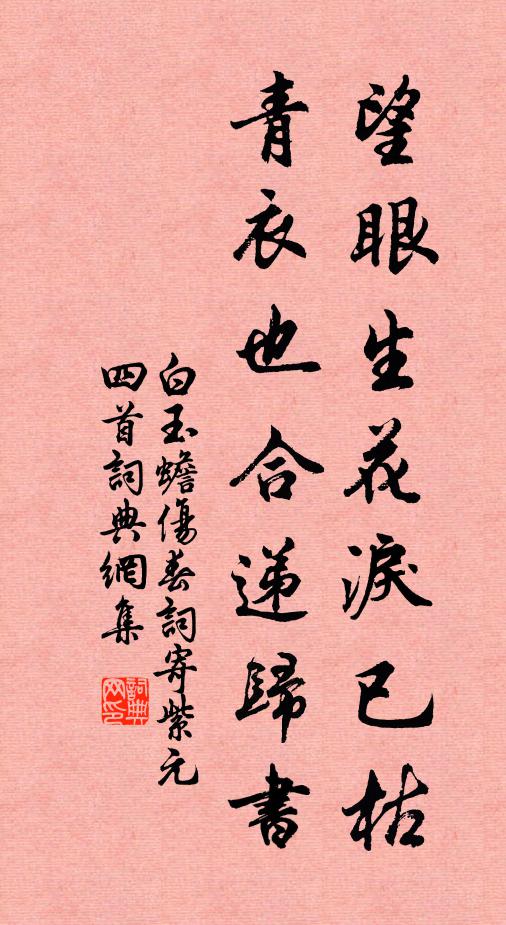 望眼生花淚已枯
青衣也合递歸書
白玉蟾傷春詞寄紫元
四首詞典網集
詞典网印